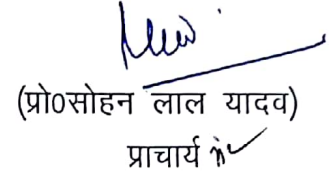 (प्रो0सोहन लाल यादव)
प्राचार्य